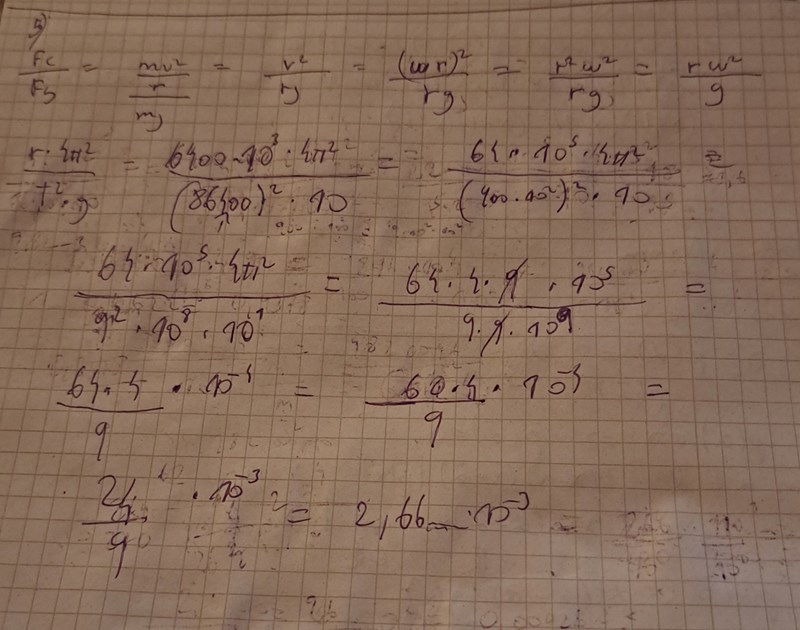 5)
Fc/Fg = (mv²/r)/mg = v²/rg = (ωr)²/rg = r²ω²/rg = rω²/g
r·4π²/T²·g = 6400·10³·4π²/(86400)²·10 = 64·10⁵·4π²/(900·10²)²·10 =
64·10⁵·4π²/9²·10⁸·10¹ = 64·4·9·10⁵/9·9·10⁹ =
64·4/9 · 10⁻⁴ = 60·4/9 · 10⁻⁴ =
24/9 · 10⁻³ = 2,66... · 10⁻³